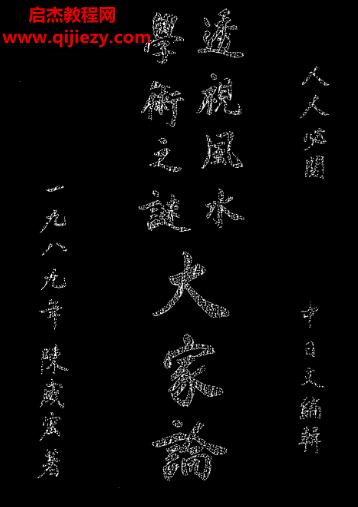 启杰教程网
www.qijiezy.com
人人必閱
中日文編輯
透視風水
學術之謎
大家論
一九八九年 陳威宏著